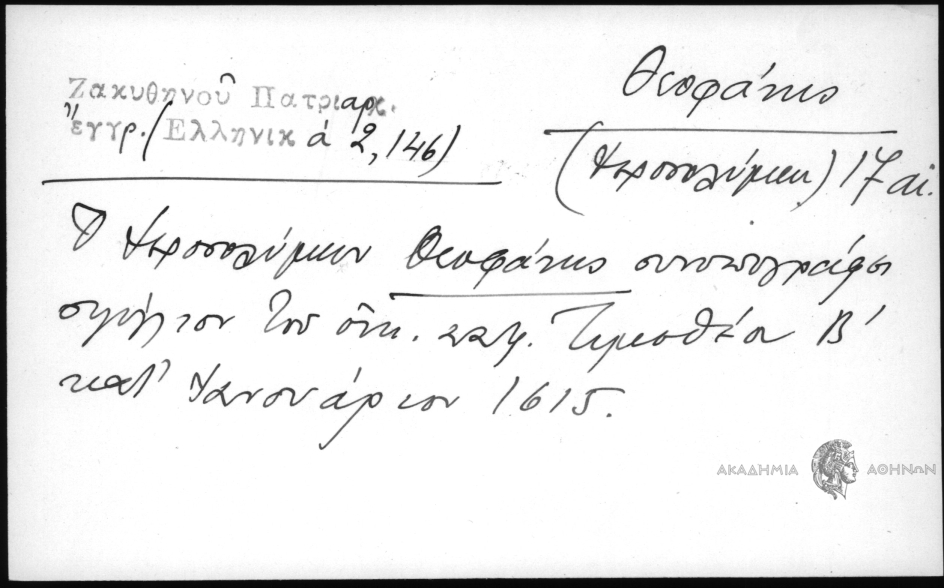 Ζακυθηνοῦ Πατριαρχ.
ἔγγρ. (Ἑλληνικά 2, 146)
Θεοφάνης
(Ἱεροσολύμων) 17 αἰ.
Ὁ Ἱεροσολύμων Θεοφάνης συνυπογράφει
σιγίλλιον τοῦ οἰκ. πατρ. Τιμοθέου Β'
κατ' Ἰανουάριον 1615.
ΑΚΑΔΗΜΙΑ ΑΘΗΝΩΝ